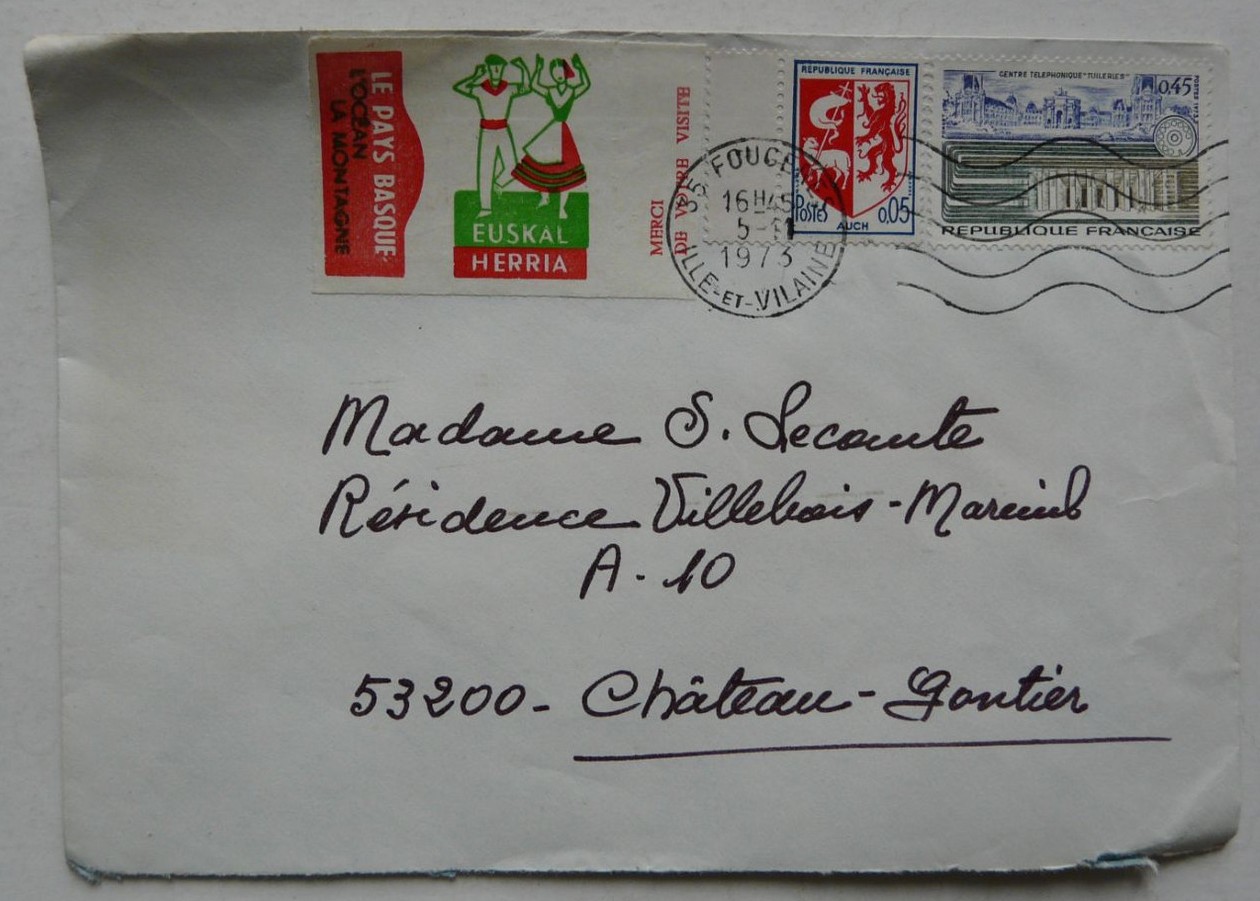 LE PAYS BASQUE
L'OCÉAN
LA MONTAGNE
EUSKAL
HERRIA
MERCI
DE VOTRE VISITE
35 FOUGERES
16H45
5-11
1973
ILLE-ET-VILAINE
RÉPUBLIQUE FRANÇAISE
POSTES
0,05
AUCH
CENTRE TELEPHONIQUE "TUILERIES"
0,45
POSTES 1973
REPUBLIQUE FRANÇAISE
Madame S. Lecomte
Résidence Villebois-Mareuil
A.10
53200- Château-Gontier